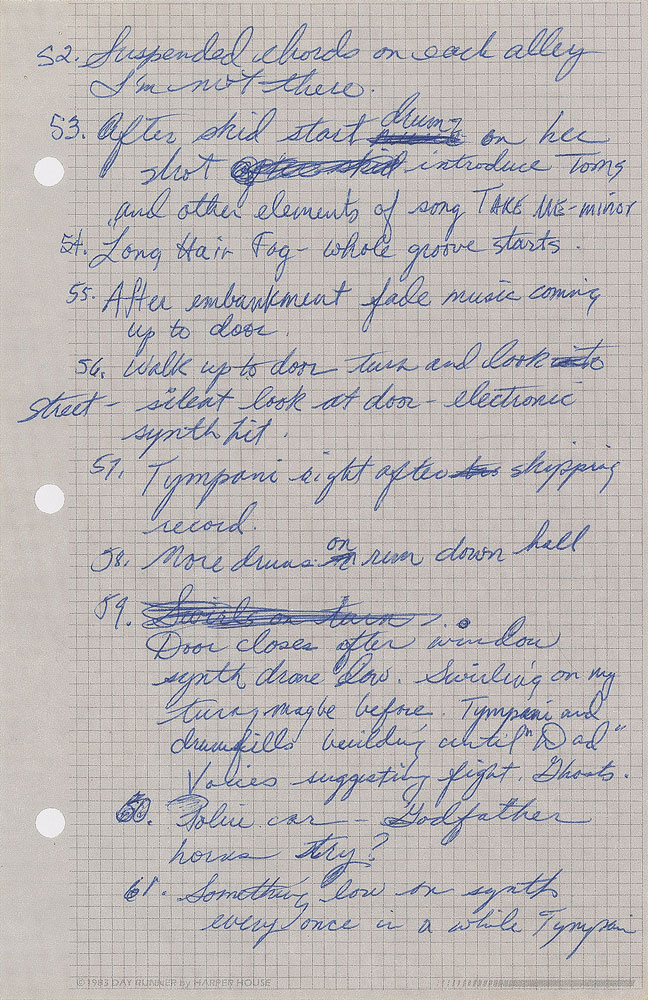 52. Suspended chords on each alley
I'm not there.
53. After skid start drums on her
shot introduce Toms
and other elements of song TAKE ME-minor
54. Long Hair Fog - whole groove starts.
55. After embankment fade music coming
up to door.
56. Walk up to door turn and look
Street - silent look at door - electronic
synth hit.
57. Tympani right after skipping
record.
58. More drums on run down hall
59. Swirls on turn
Door closes after window
synth drone low. Swirling on my
turns maybe before. Tympani and
drumfills building until "Dad"
Voices suggesting fight. Ghosts.
60. Police car - Godfather
horns try?
61. Something low on synth
every once in a while Tympani
©1983 DAY RUNNER by HARPER HOUSE